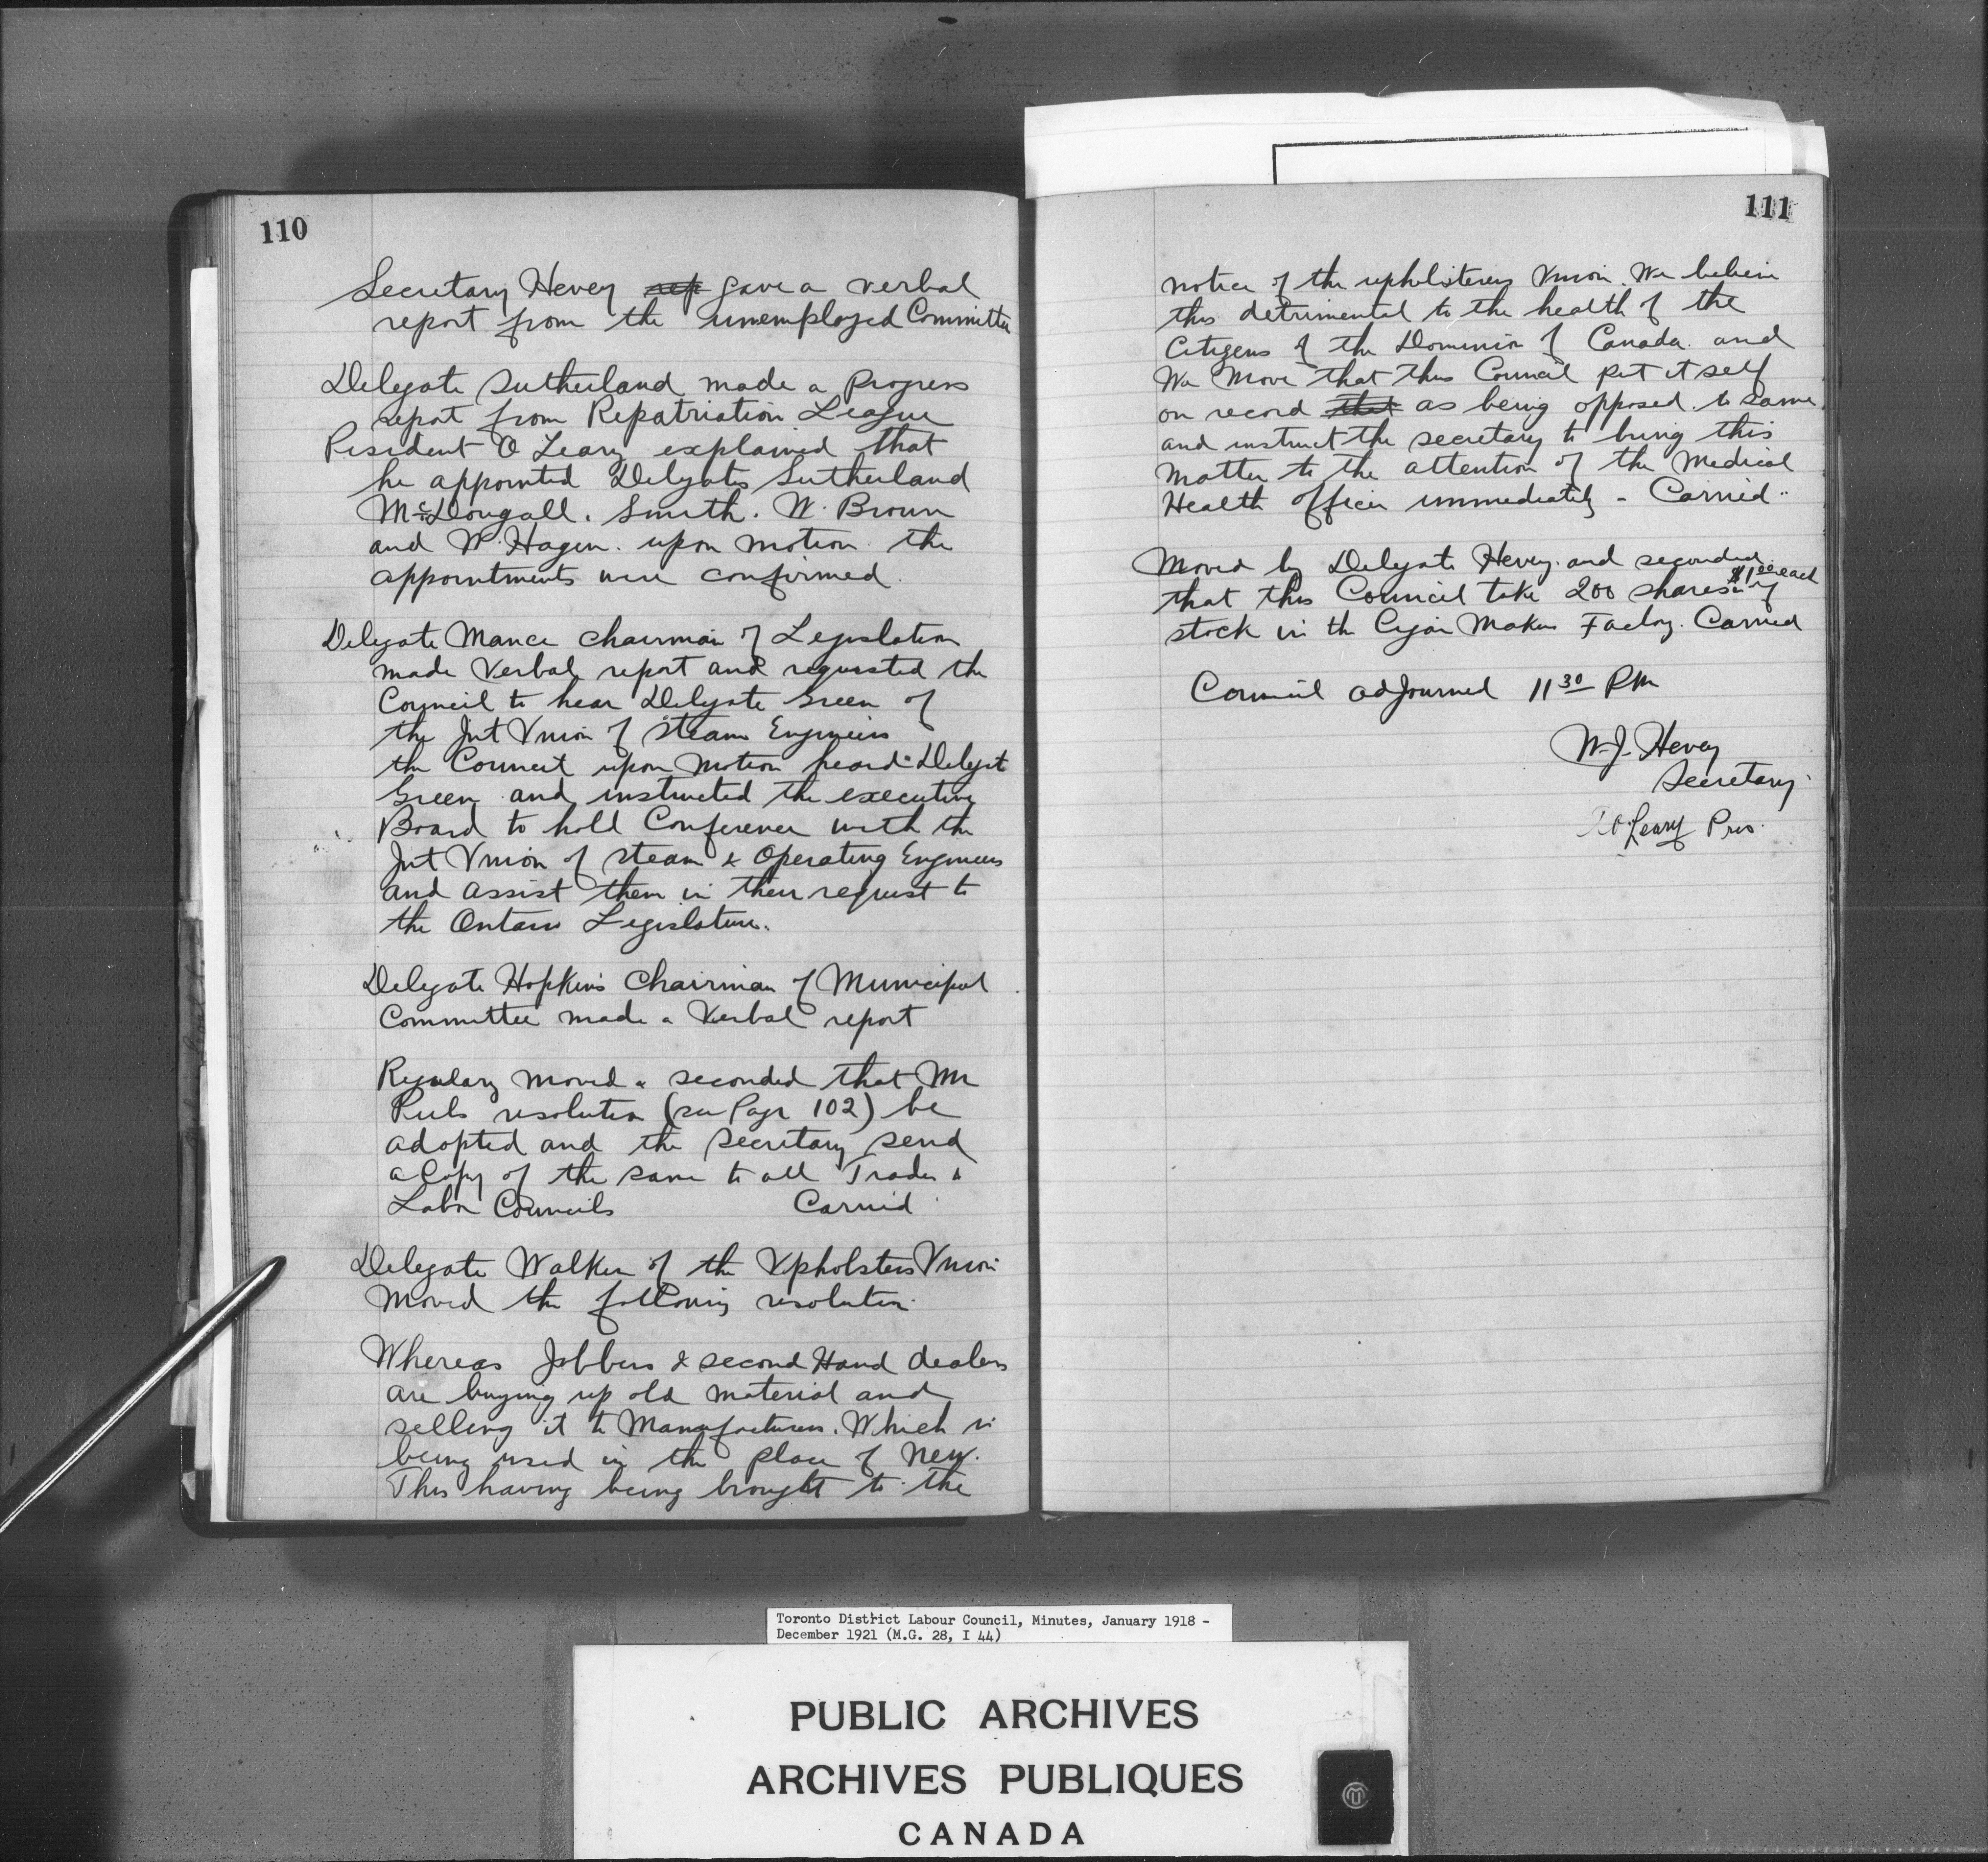 110
Secretary Hevey rep gave a verbal
report from the unemployed Committee
Delegate Sutherland made a Progress
report from Repatriation League
President O Leary explained that
he appointed Delegates Sutherland
McDougall. Smith. W. Brown
and W. Hagen. upon motion the
appointments were confirmed.
Delegate Mance Chairman of Legislation
made Verbal report and requested the
Council to hear Delegate Green of
the Int Union of Steam Engineers
the Council upon Motion heard Delegate
Green and instructed the executive
Board to hold Conference with the
Int Union of Steam & Operating Engineers
and assist them in their request to
the Ontario Legislature.
Delegate Hopkins Chairman of Municipal
Committee made a Verbal report
Regulary moved & seconded that Mr
resolution (see Page 102) be
adopted and the Secretary send
a Copy of the same to all Trades &
Labor Councils Carried
Delegate Walker of the Upholsters Union
Moved the following resolution.
Whereas Jobbers & second Hand dealers
are buying up old material and
selling it to Manufacturers. Which is
being used in the place of New.
This having being brought to the
111
notice of the upholsterers Union. We believe
this detrimental to the health of the
Citizens of the Dominion of Canada. and
We Move that this Council put it self
on record that as being opposed to same.
and instruct the secretary to bring this
Matter to the attention of the Medical
Health officer immediately - Carried..
Moved by Delegate Hevey. and seconded.
that this Council take 200 shares $1.00 each of
stock in the Cigar Makers Factory. Carried
Council adjourned 11 30 PM
W.J. Hevey
Secretary.
O'Leary Pres.
Toronto District Labour Council, Minutes, January 1918 -
December 1921 (M.G. 28, I 44)
PUBLIC ARCHIVES
ARCHIVES PUBLIQUES
CANADA